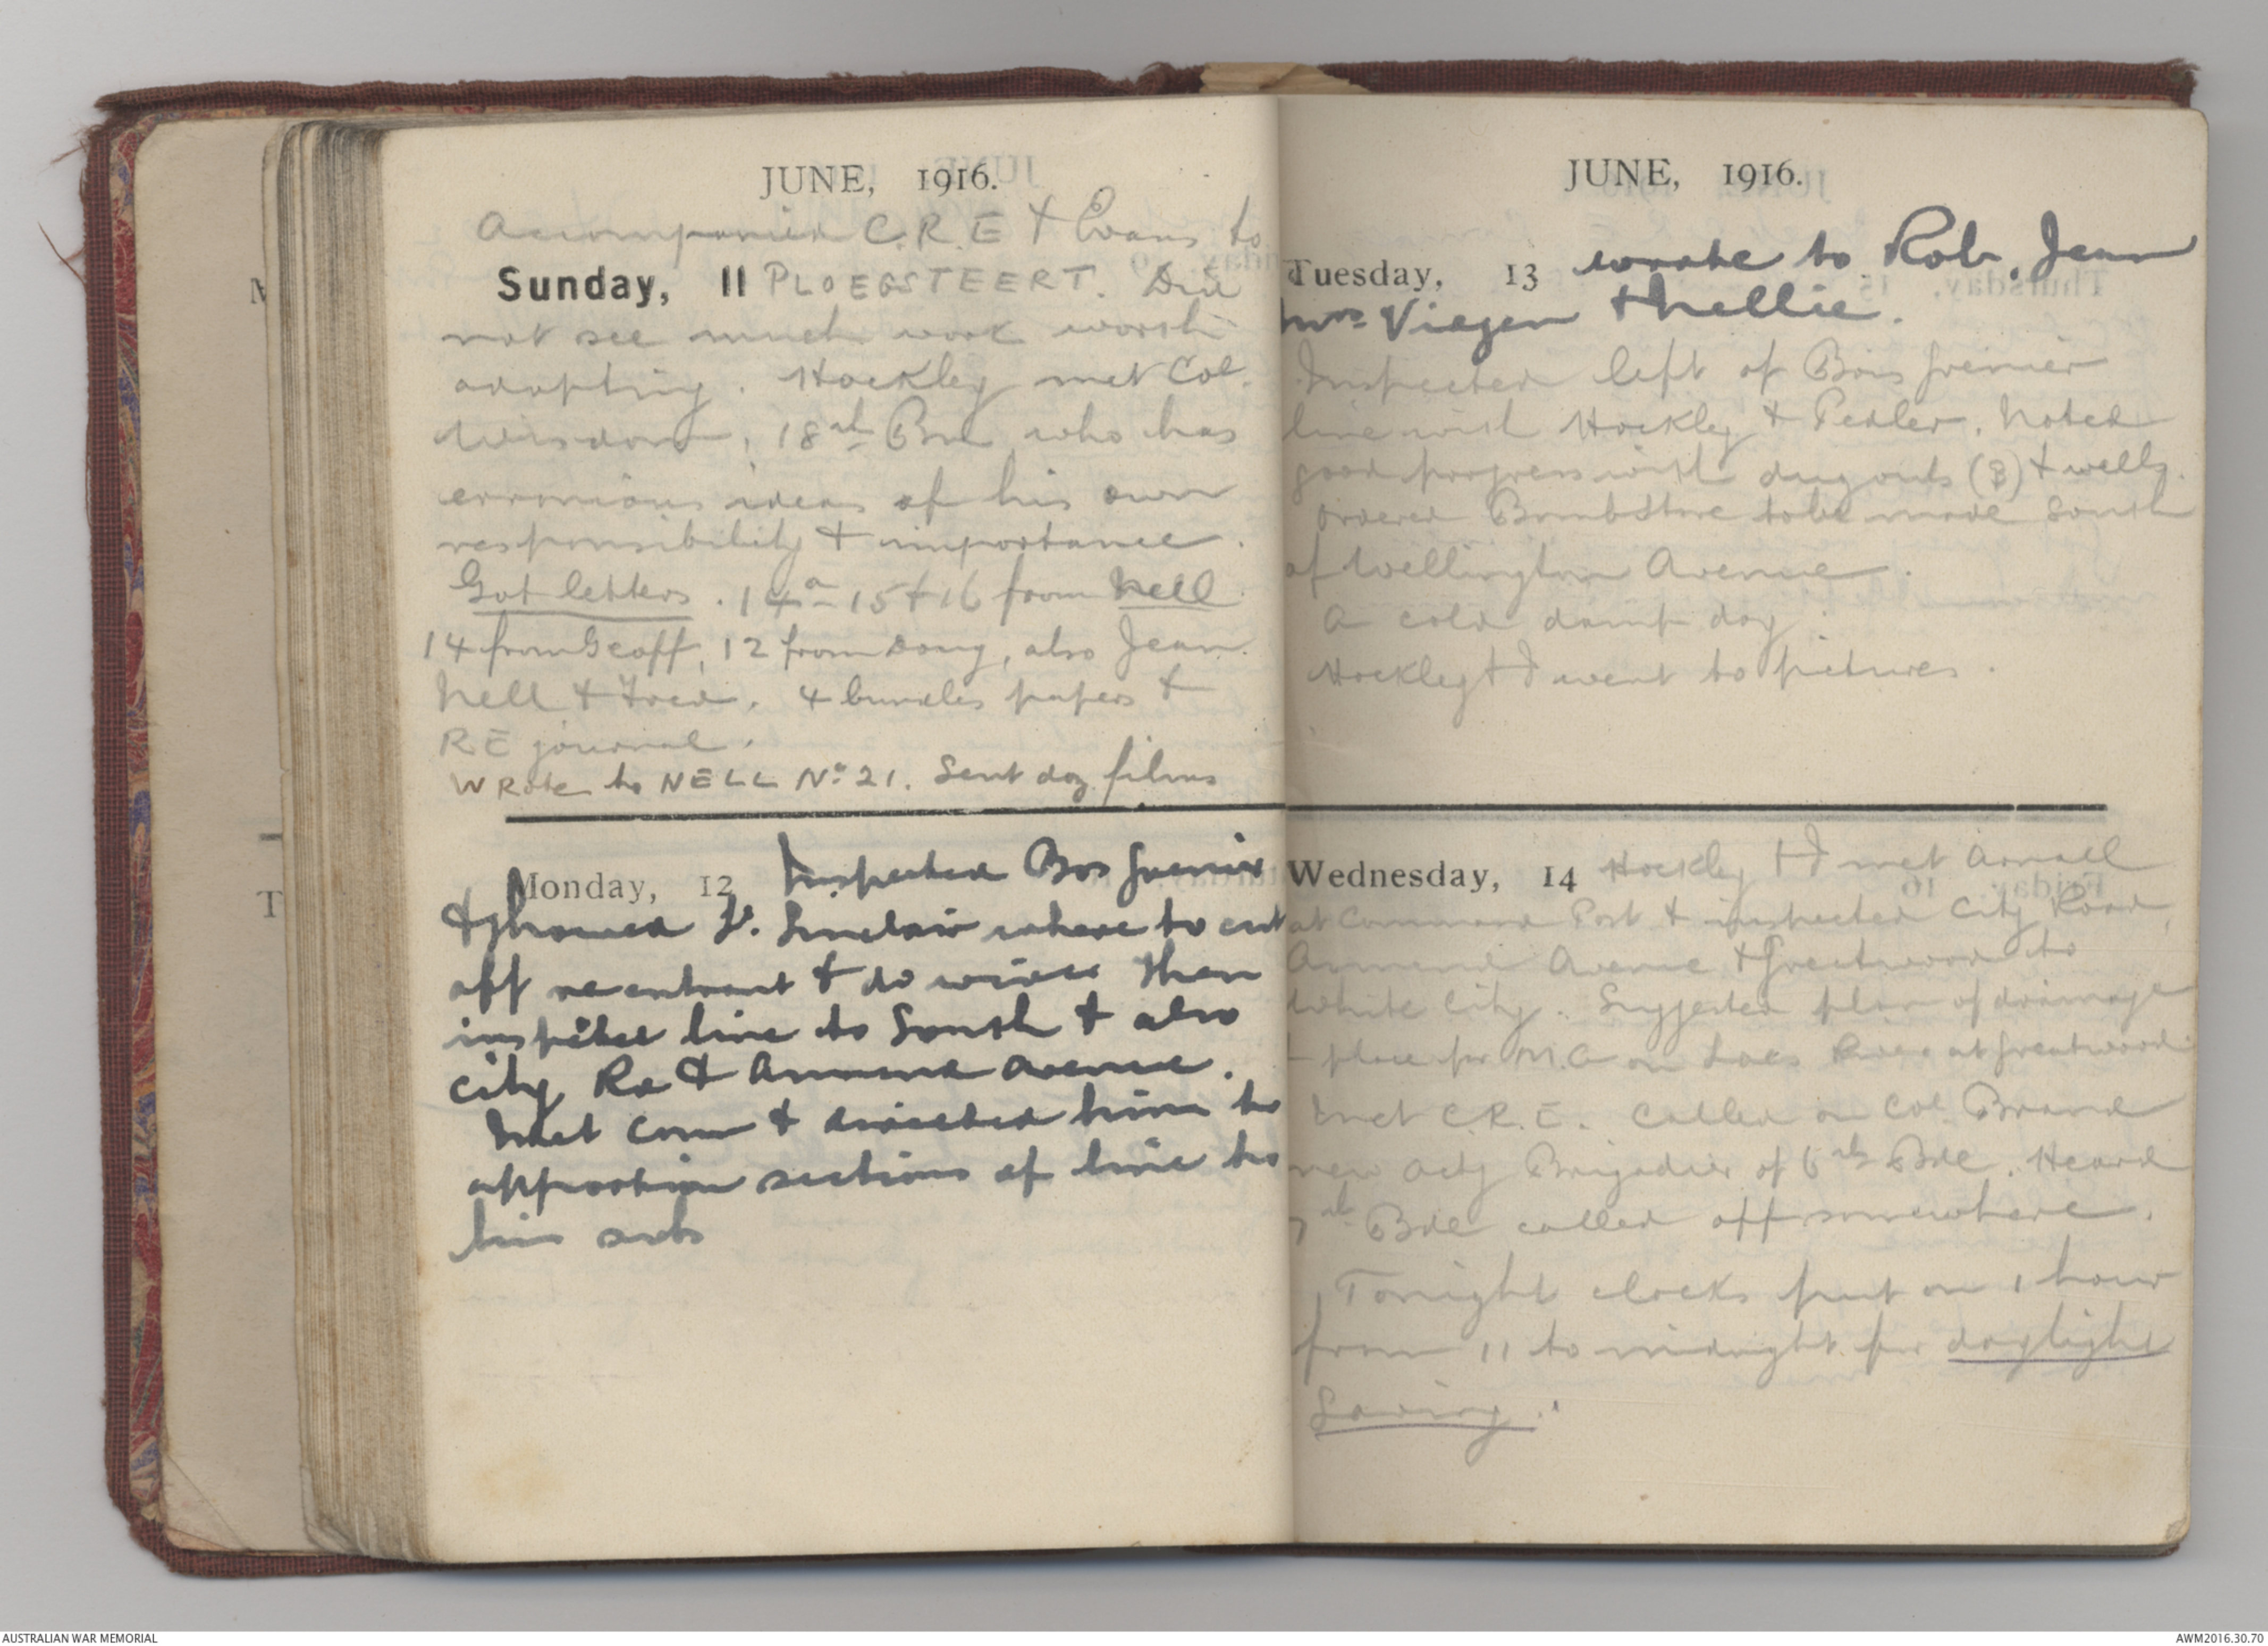 JUNE, 1916.
Accompanied C.R.E & Evans to
Sunday, 11 PLOEGSTEERT. Did
not see much work worth
adopting. Hockley met Col.
Wisdom, 18th Bn who has
erronious ideas of his own
responsibility & importance.
Got letters. 14a 15 & 16 from Nell
14 from Geoff, 12 from Doug, also Jean.
Nell & Fred. 4 bundles papers &
RE journal.
Wrote to NELL No. 21. Sent dog films
Monday, 12 Inspected Bois Grenier
& showed Lt. Sinclair where to cut
off re entrant & do wires then
inspected line to South & also
City Rd & Ammend Avenue.
Met Corr & directed him to
apportion sections of line to
his subs
JUNE, 1916.
Tuesday, 13 wrote to Rob, Jean
Mrs Viegen & Nellie.
Inspected left of Bois Grenier
line with Hockley & Pedler. Noted
good progress with dugouts (8) & wells.
Ordered Bomb Store to be made South
of Wellington Avenue.
A cold damp day.
Hockley & I went to pictures.
Wednesday, 14 Hockley & I met Arnall
at Command Post & inspected City Road,
Ammend Avenue & Greatwood to
White City. Suggested plan of drainage
& place for M.G on Lacs River at Greatwood
Met C.R.E. Called on Col Brand
new actg Brigadier of 6th Bde. Heard
7th Bde called off somewhere.
Tonight clocks put on 1 hour
from 11 to midnight for daylight
Saving.
AUSTRALIAN WAR MEMORIAL
AWM2016.30.70